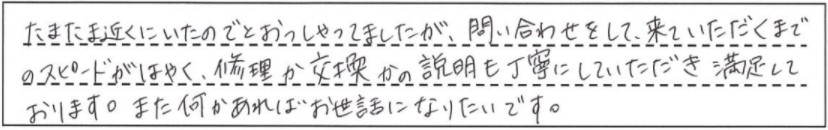 たまたま近くにいたのでとおっしゃってましたが、問い合わせをして、来ていただくまで
のスピードがはやく、修理か交換かの説明も丁寧にしていただき満足して
おります。また何かあればお世話になりたいです。